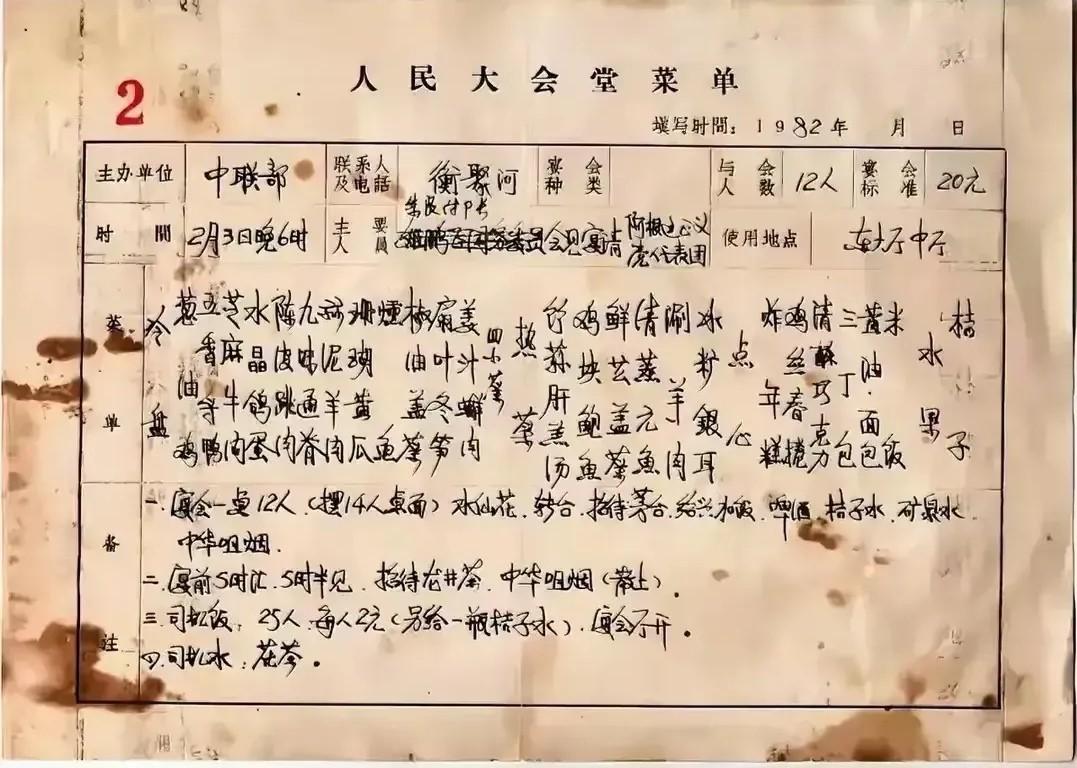 2
人民大会堂菜单
填写时間：1982年 月 日
主办单位 中联部 联系人及电話 衡聚河 宴会种类 与会人数 12人 宴会标准 20元
时間 2月3日晚6时 主要人員 会见宴请 代表团 使用地点 东大厅中厅
菜单
冷盘
葱油鸡
五香鸭
芝麻牛肉
水晶鸽蛋
陈皮肉
九味通脊
羊肉
珊瑚黄瓜
燻鱼
椒油盖菜
冬笋
姜汁肉
四小菜
热菜
竹荪肝羔汤
鸡块鲍鱼
鲜盖菜
清蒸元鱼
涮羊肉
冰銀耳
点心
炸年糕
鸡丝春捲
清酥巧克力
三丁包
黄油面包
米饭
水果
桔子
备注
一、宴会一桌12人（摆14人桌面）水仙花、转台、招待茅台、绍兴加饭、啤酒、桔子水、矿泉水
中华咀烟．
二、宴前5时汇、5时半见、招待龙井茶、中华咀烟（散上）．
三、司机饭：25人、每人2元（另给一瓶桔子水）、宴会厅开．
四、司机水：花茶．